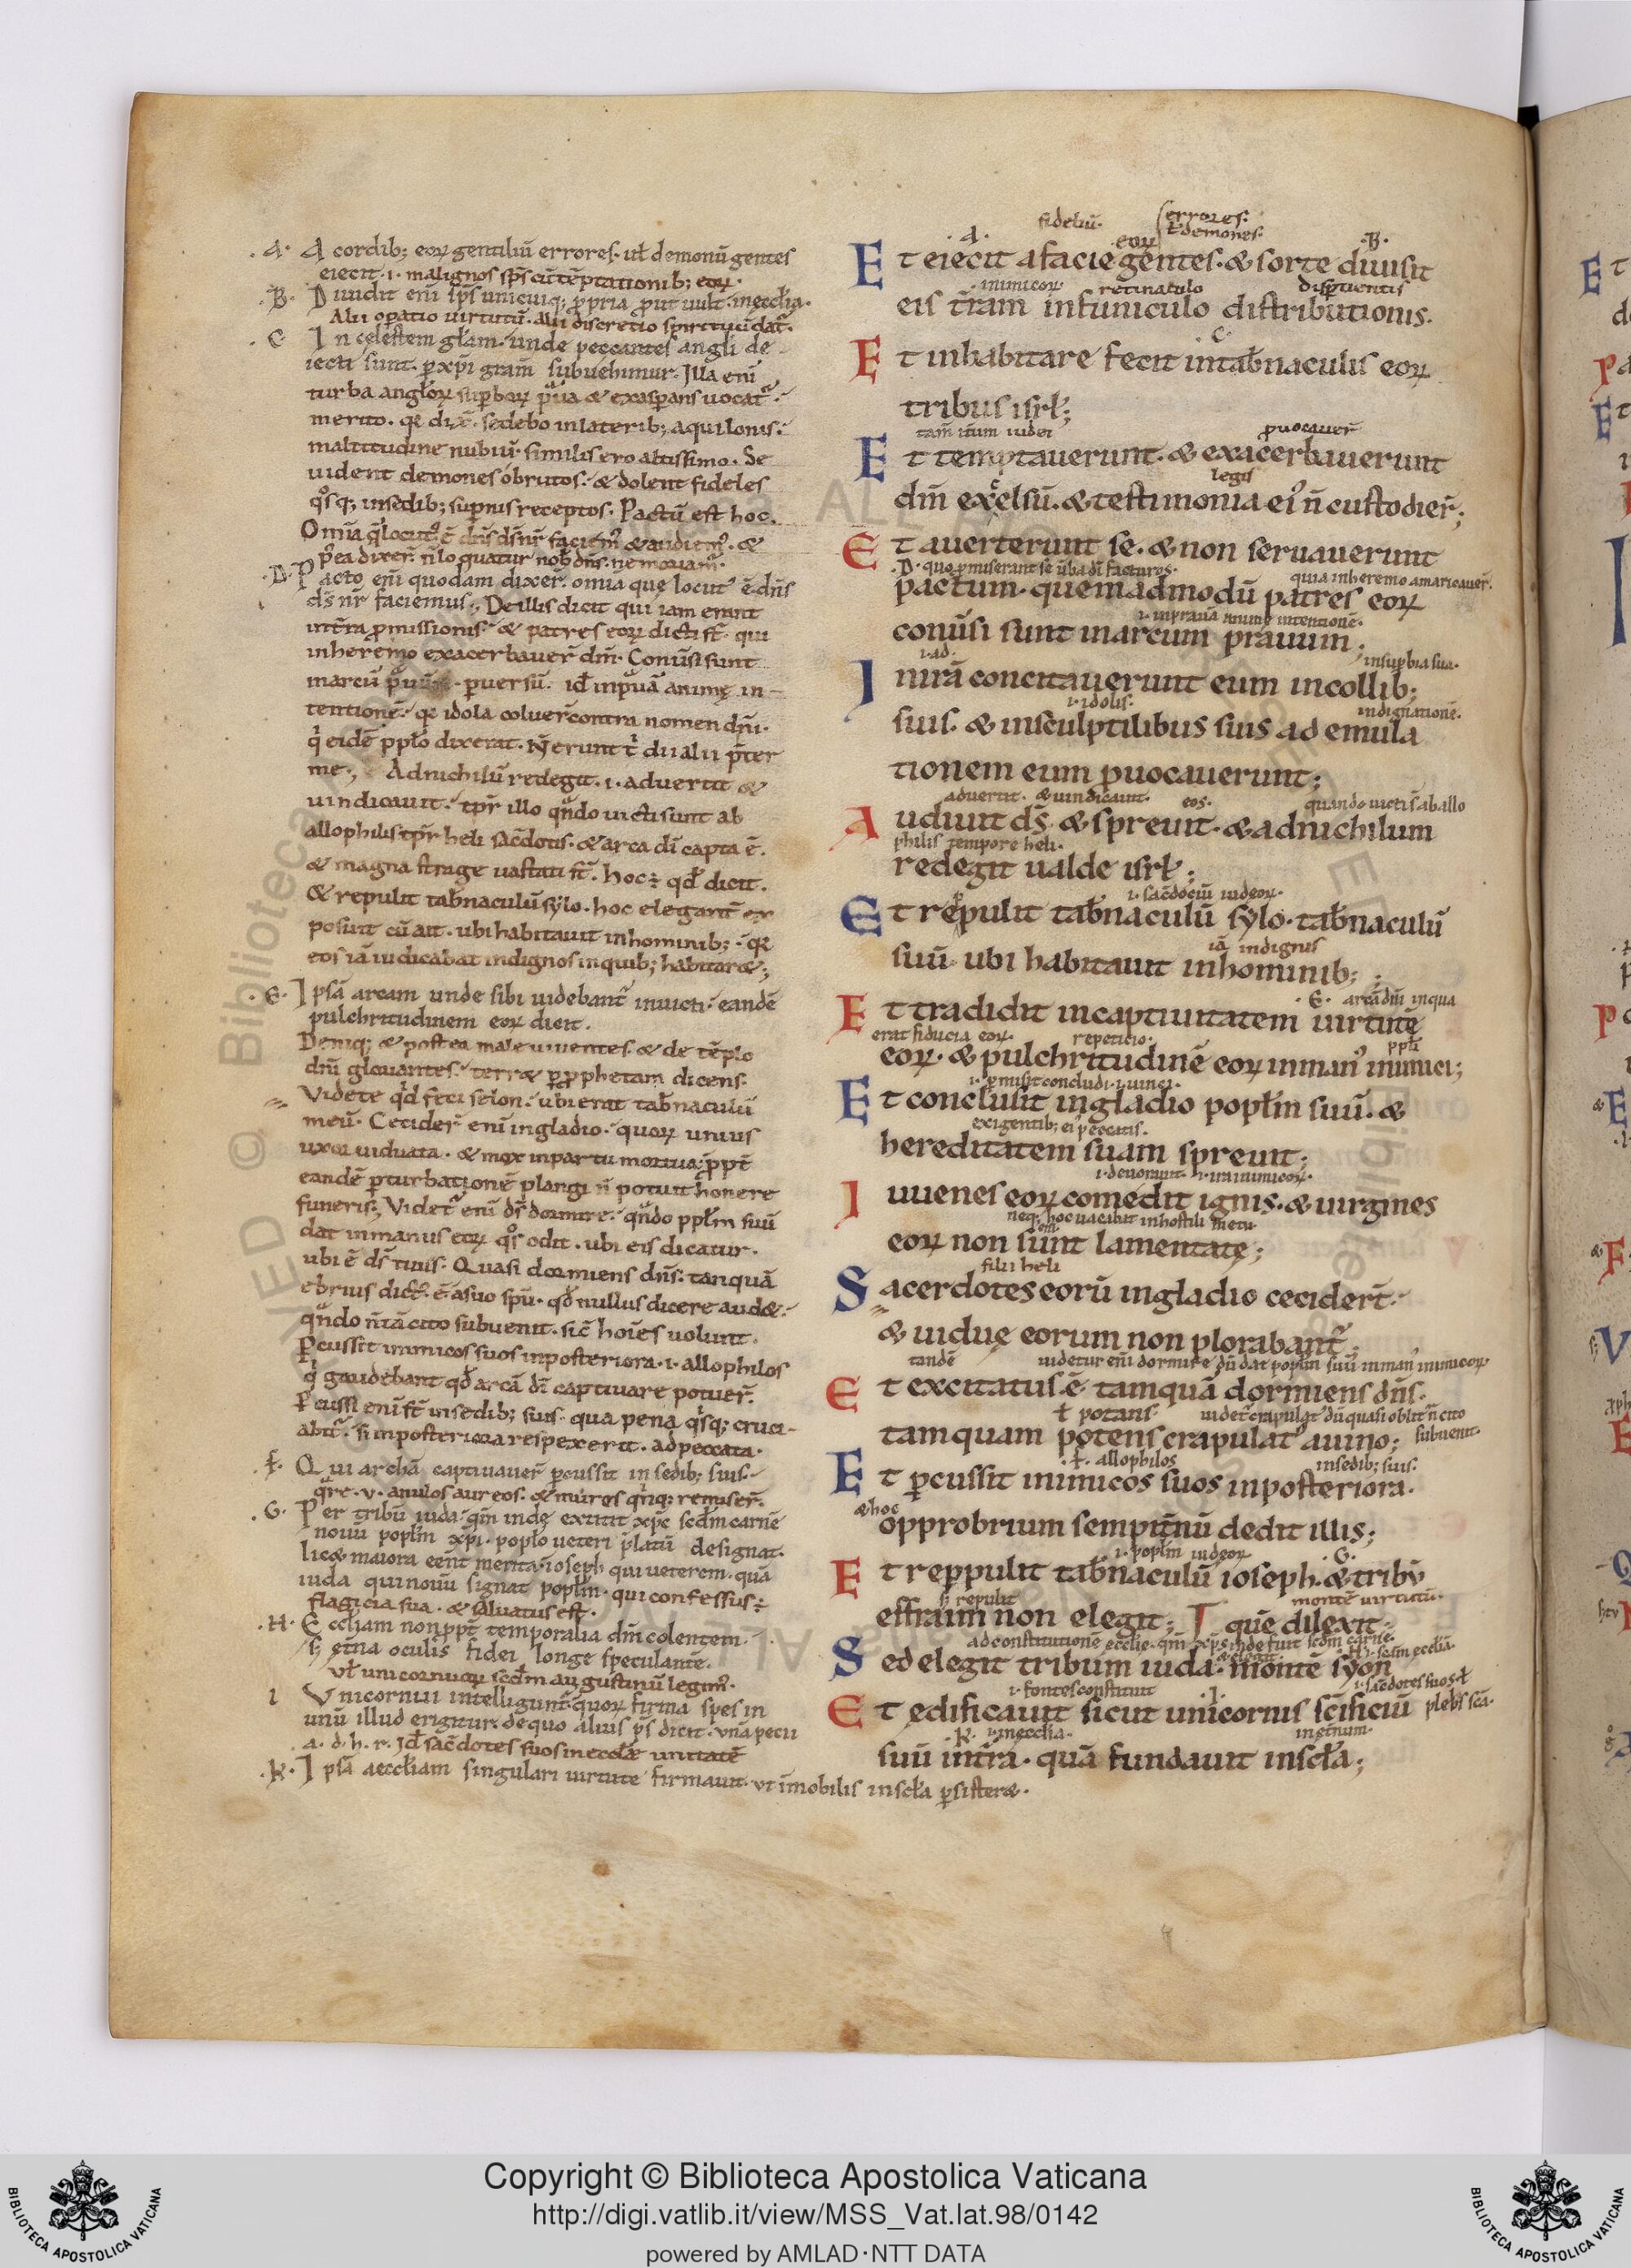 .A. A cordib; eoꝝ gentiliū errores. ul̵ demonū gentes
eiecit .i. malignos sp̄s cū tēptationib; eoꝝ.
.B. Diuidit eni sp̄s unicuiq; ꝓpria ꝓut uult. in ęccl̵ia.
Alii oꝑatio uirtutū. alii discretio spirituū dat᷑.
.C. In cęlestem gl̵am. unde peccantes angl̵i de
iecti sunt. ꝑ xp̄i gram̄ subuehimur. Illa eni
turba angl̵oꝝ suꝑboꝝ
merito. q̄ dix̄. sedebo in laterib; aquilonis.
maltitudine nubiū. similis ero altissimo. Se
uident demones obrutos. & dolent fideles
q̊sq; in sedib; suꝑnis receptos. Pactū est hoc.
.D. Pacto eni quodam dixer̄. omia que locut᷒ ē dn̄s
ds̄ nr̄ faciemus. De illis dicit qui iam erant
in tr̄ra ꝓmissionis. & patres eoꝝ dicti st̄. qui
in heremo exacerbauer̄ dm̄. Conūsi sunt
tentionē. q̄ idola coluer̄ contra nomen dn̄i.
me., Ad nichilū redegit .i. aduertit &
uindicauit. tp̄r illo qn̄do uicti sunt ab
allophilis tp̄r heli sac̄dotis. & arca dī capta ē.
& magna strage uastati st̄. hoc ÷ qd̄ dicit.
& repulit tab̄naculū sylo. hoc eleganť ex
posuit cū ait. ubi habitauit in hominib;. q̄
eos iā iudicabat indignos in quib; habitar&;
.E. Ipsā arcam unde sibi uidebant᷑ inuicti. eandē
pulchritudinem eoꝝ dicit.
Deniq; & postea male uiuentes. & de tēplo
dn̄i gloriantes. terr& ꝑ ꝓphetam dicens.
Videte qd̄ feci selon. ubi erat tab̄naculū
meū. Cecider̄ eni in gladio. quoꝝ unius
uxor uiduata. & mox in partu mortua. ꝓpt̄
eandē ꝑturbationē plangi n̄ potuit honere
funeris; Videt᷑ eni ds̄ dormire. qn̄do ppl̵m suū
dat in manus eoꝝ q̊s odit. ubi eis dicatur.
ubi ē ds̄ tuus. Quasi dormiens dn̄s. tanquā
ebrius
qn̄do n̄ tā cito subuenit. sic̄ hoīes uolunt.
Ꝑcussit inimicos suos in posteriora .i. allophilos
q̇ gaudebant qd̄ arcā dī captiuare potuer̄.
Ꝑcussi eni st̄ in sedib; suis. qua pena q̇sq; cruci-
abit᷑. si in posteriora respexerit. ad peccata.
.F. Qui archā captiuauer̄ ꝑcussit in sedib; suis.
q̄re .v. anulos aureos. & mures q̇nq; remiser̄.
.G. Per tribū iuda. qm̄ inde extitit xp̄c scd̄m carnē
nouū popl̵m xp̄i. popl̵o ueteri p̄latū designat.
lic& maiora eēnt merita ioseph qui ueterem. quā
iuda qui nouū signat popl̵m. qui confessus ÷
flagicia sua. & saluatus est.
.H. Eccl̵iam non ꝓpt̄ temporalia dm̄ colentem.
s; et̄na oculis fidei longe speculantē.
ul̵ unicornuoꝝ scd̄m augustinū legim᷒.
I Vnicornui intelligunt᷑ quoꝝ firma spes in
unū illud erigitur. de quo alius ps̄ dicit. vnā pecii
a. d. h. r. Id̄ sac̄dotes suos in eccl̵ę unitatē
.K. Ipsā aeccl̵iam singulari uirtute firmauit. vt imobilis in scl̵a ꝑsister&.
fideliū. errores.
ul̵ demones.
.A. eoꝝ .B.
Et eiecit a facie gentes. & sorte diuisit
inimicoꝝ retinaculo
eis tr̄ram in funiculo distributionis.
.C.
Et inhabitare fecit in tab̄naculis eoꝝ
tribus isrl̵;
tam̄ itum iudei ꝓuocauer̄
Et temptauerunt. & exacerbauerunt
legis
dm̄ excelsū. & testimonia ei᷒ n̄ custodier̄;
Et auerterunt se. & non seruauerunt
.D. quo ꝓmiserant se ūba dī facturos. quia in heremo amaricauer̄.
pactum. quemadmodū patres eoꝝ
.i. in prauā animę intentionē.
conūsi sunt in arcum prauum;
.i. ad. in suꝑbia sua.
In irā concitauerunt eum in collib;
.i. idolis. indignationē.
suis. & in sculptilibus suis ad emula
tionem eum ꝓuocauerunt;
aduertit. & uindicauit. eos. quando uicti s̄ ab allo
Audiuit ds̄. & spreuit. & ad nichilum
philis tempore heli.
redegit ualde isrl̵;
.i. sac̄dociū iudeoꝝ.
Et repulit tab̄naculū sylo. tab̄naculū
iā indignis
suū. ubi habitauit in hominib;
.E. arcā dn̄i in qua
Et tradidit in captiuitatem uirtutē
erat fiducia eoꝝ. repeticio. ppl̵i
eoꝝ. & pulchritudinē eoꝝ in man᷒ inimici;
.i. ꝑmisit concludi .i. uinci.
Et conclusit in gladio popl̵m suū. &
exigentib; ei᷒ peccatis.
hereditatem suam spreuit;
.i. deuorauit. .i. ira inimicoꝝ.
Iuuenes eoꝝ comedit ignis. & uirgines
neq; hoc uacabat in hostili metu
eoꝝ non sunt lamentatę;
filii heli
Sacerdotes eorū in gladio cecidert̄.
& uiduę eorum non plorabant᷑
tandē uidetur eni dormire dū dat popl̵m suū in man᷒ inimicoꝝ
Et excitatus ē tamquā dormiens dn̄s.
ł potans uidet᷑ crapulat᷒ dū quasi oblit᷒ n̄ cito
tamquam potens crapulat᷒ a uino; subuenit.
.F. allophilos in sedib; suis.
Et ꝑcussit inimicos suos in posteriora.
& hoc
opprobrium sempit̄nū dedit illis;
.i. popl̵m iudeoꝝ .G.
Et reppulit tab̄naculū ioseph. & tribū
s; repulit montē uirtutū.
effraim non elegit; quē dilexit
ad constitutionē ecclie. qm̄ xp̄s inde fuit scd̄m carnē. & elegit .H. .i. scam eccliā.
Sed elegit tribum iuda. montē syon
.i. fontes constituit .I. .i. sac̄dotes suos ł
Et ędificauit sicut unicornis sc̄ificiū plebs scā.
.K. .i. in eccl̵ia. in et̄num.
suū in tr̄ra. quā fundauit in scl̵a;
Copyright © Biblioteca Apostolica Vaticana
http://digi.vatlib.it/view/MSS_Vat.lat.98/0142
powered by AMLAD·NTT DATA
BIBLIOTECA APOSTOLICA VATICANA
BIBLIOTECA APOSTOLICA VATICANA